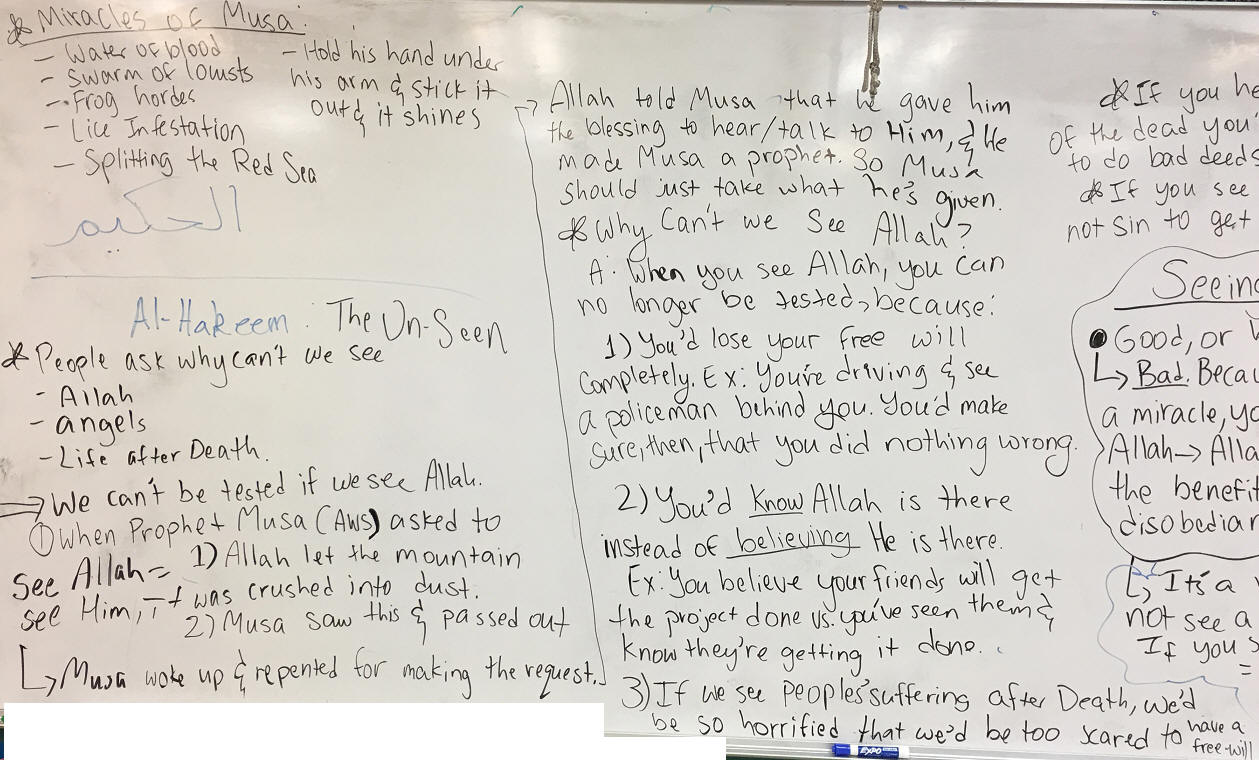 * Miracles of Musa:
- Water of blood
- Swarm of lousts
- Frog hordes
- Lice Infestation
- Splitting the Red Sea
- Hold his hand under
his arm & stick it
out & it shines
الحكيم
Al-Hakeem: The Un-Seen
* People ask why can't we see
- Allah
- angels
- Life after Death.
⇒ We can't be tested if we see Allah.
① When Prophet Musa (AWS) asked to
see Allah = 1) Allah let the mountain
see Him, It was crushed into dust.
2) Musa saw this & passed out
↳ Musa woke up & repented for making the request.
→ Allah told Musa that He gave him
the blessing to hear/talk to Him, & He
made Musa a prophet. So Musa
should just take what he's given.
* Why Can't we See Allah?
A: When you see Allah, you can
no longer be tested, because:
1) You'd lose your free will
completely. Ex: You're driving & see
a policeman behind you. You'd make
sure, then, that you did nothing wrong.
2) You'd know Allah is there
instead of believing He is there.
Ex: You believe your friends will get
the project done vs. you've seen them &
know they're getting it done.
3) If we see people's suffering after Death, we'd
be so horrified that we'd be too scared to have a
free-will
* If you he
of the dead you'
to do bad deeds
* If you see
not sin to get
Seein
• Good, or
↳ Bad. Becau
a miracle, yo
Allah → Alla
the benefit
disobedian
↳ It's a
not see a
If you s
=
EXPO